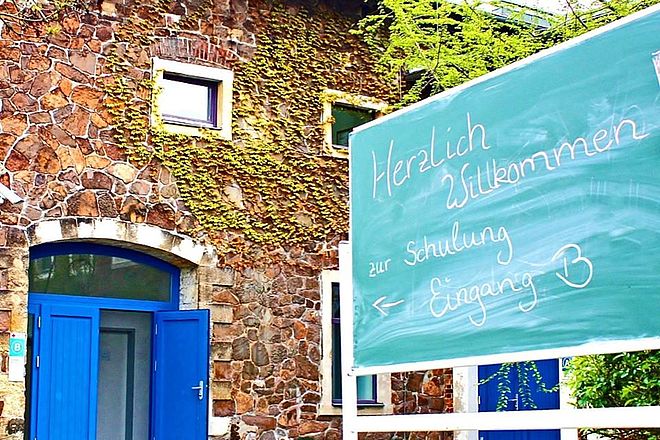 Herzlich
Willkommen
zur Schulung
← Eingang B
B